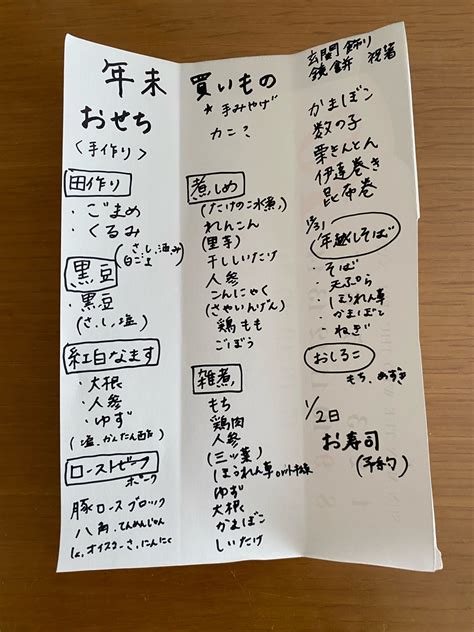 年末 買いもの
おせち
<手作り>
田作り
・ごまめ
・くるみ
(さ、し、酒、み
白ごま)
黒豆
・黒豆
(さ、し、塩)
紅白なます
・大根
・人参
・ゆず
(塩、かんたん酢)
ローストビーフ
ポーク
豚ロースブロック
八角、てんめんじゃん
オイスター、さ、にんにく
*手みやげ
カニ?
煮しめ
(たけのこ水煮)
れんこん
(里芋)
干ししいたけ
人参
こんにゃく
(さやいんげん)
鶏もも
ごぼう
雑煮
もち
鶏肉
人参
(三ツ葉)
ほうれん草or小松菜
ゆず
大根
かまぼこ
しいたけ
玄関飾り
鏡餅 祝箸
かまぼこ
数の子
栗きんとん
伊達巻き
昆布巻
12/31
年越しそば
・そば
・天ぷら
・ほうれん草
・かまぼこ
・ねぎ
おしるこ
もち、あずき
1/2日
お寿司
(予約)